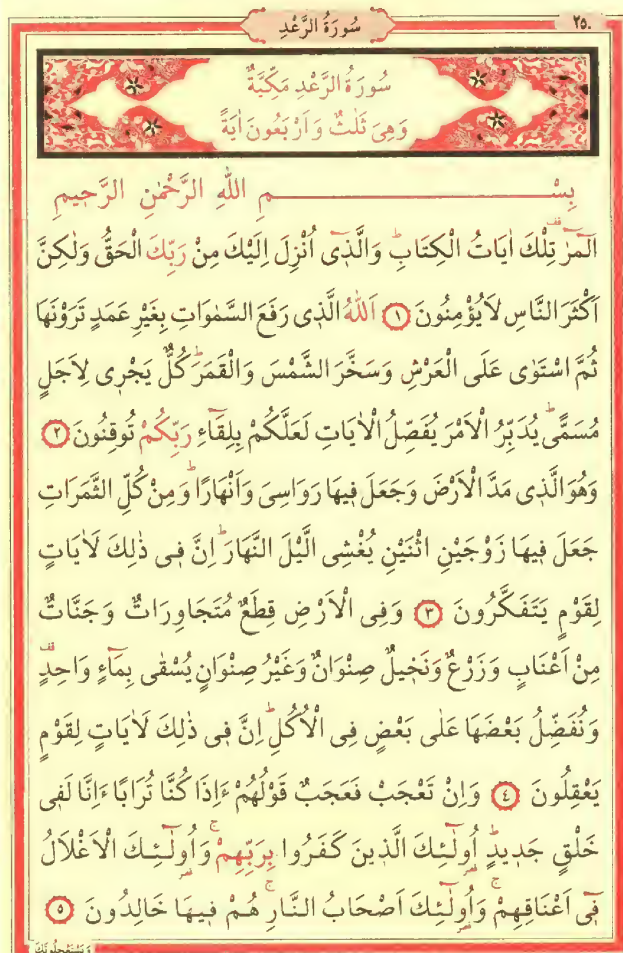 ٢٥٠
سُورَةُ الرَّعْدِ
سُورَةُ الرَّعْدِ مَكِّيَّةٌ
وَهِىَ ثَلٰثٌ وَاَرْبَعُونَ اٰيَةً
بِسْمِ اللّٰهِ الرَّحْمٰنِ الرَّحِيمِ
الٓمٓرٰ ۠ تِلْكَ اٰيَاتُ الْكِتَابِۜ وَالَّذٖٓى اُنْزِلَ اِلَيْكَ مِنْ رَبِّكَ الْحَقُّ وَلٰكِنَّ
اَكْثَرَ النَّاسِ لَايُؤْمِنُونَ ١ اَللّٰهُ الَّذٖى رَفَعَ السَّمٰوَاتِ بِغَيْرِ عَمَدٍ تَرَوْنَهَا
ثُمَّ اسْتَوٰى عَلَى الْعَرْشِ وَسَخَّرَ الشَّمْسَ وَالْقَمَرَؕ كُلٌّ يَجْرٖى لِاَجَلٍ
مُسَمًّىؕ يُدَبِّرُ الْاَمْرَ يُفَصِّلُ الْاٰيَاتِ لَعَلَّكُمْ بِلِقَٓاءِ رَبِّكُمْ تُوقِنُونَ ٢
وَهُوَ الَّذٖى مَدَّ الْاَرْضَ وَجَعَلَ فٖيهَا رَوَاسِىَ وَاَنْهَارًاؕ وَمِنْ كُلِّ الثَّمَرَاتِ
جَعَلَ فٖيهَا زَوْجَيْنِ اثْنَيْنِ يُغْشِى الَّيْلَ النَّهَارَؕ اِنَّ فٖى ذٰلِكَ لَاٰيَاتٍ
لِقَوْمٍ يَتَفَكَّرُونَ ٣ وَفِى الْاَرْضِ قِطَعٌ مُتَجَاوِرَاتٌ وَجَنَّاتٌ
مِنْ اَعْنَابٍ وَزَرْعٌ وَنَخٖيلٌ صِنْوَانٌ وَغَيْرُ صِنْوَانٍ يُسْقٰى بِمَٓاءٍ وَاحِدٍ
وَنُفَضِّلُ بَعْضَهَا عَلٰى بَعْضٍ فِى الْاُكُلِؕ اِنَّ فٖى ذٰلِكَ لَاٰيَاتٍ لِقَوْمٍ
يَعْقِلُونَ ٤ وَاِنْ تَعْجَبْ فَعَجَبٌ قَوْلُهُمْ ءَاِذَا كُنَّا تُرَابًا ءَاِنَّا لَفٖى
خَلْقٍ جَدٖيدٍؕ اُو۬لٰٓئِكَ الَّذٖينَ كَفَرُوا بِرَبِّهِمْۚ وَاُو۬لٰٓئِكَ الْاَغْلَالُ
فٖٓى اَعْنَاقِهِمْۚ وَاُو۬لٰٓئِكَ اَصْحَابُ النَّارِۚ هُمْ فٖيهَا خَالِدُونَ ٥
وَيَسْتَعْجِلُونَكَ